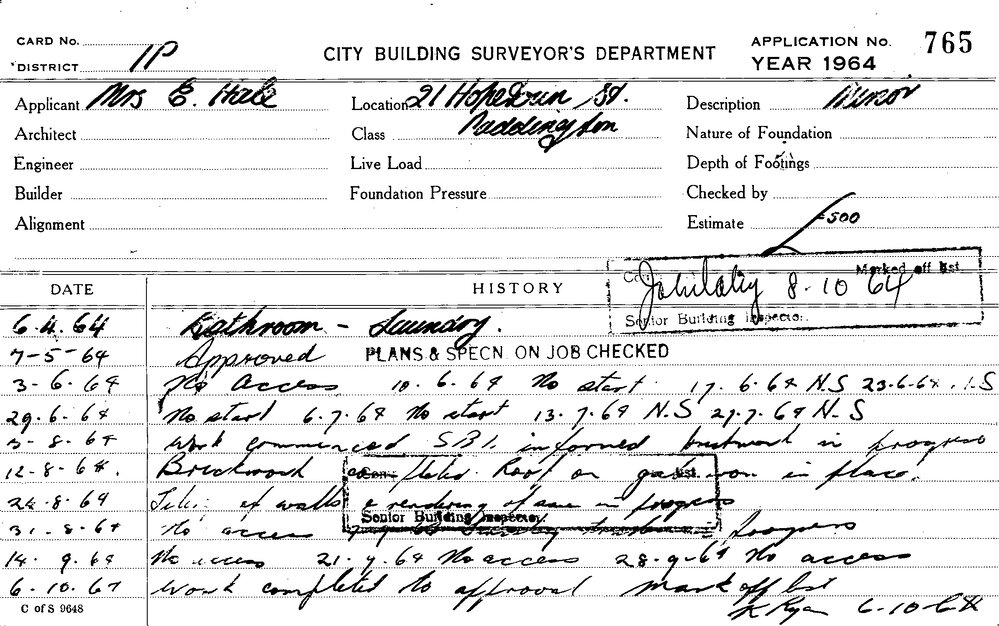 CARD No.
CITY BUILDING SURVEYOR'S DEPARTMENT
APPLICATION No. 765
DISTRICT 1P
YEAR 1964
Applicant Mrs E. Hale
Location 21 Hopetoun St.
Description Minor
Architect
Class Paddington
Nature of Foundation
Engineer
Live Load
Depth of Footings
Builder
Foundation Pressure
Checked by
Alignment
Estimate £500
Marked off list
8-10-64
Senior Building Inspector.
DATE
HISTORY
6.4.64 Bathroom - Laundry.
7-5-64 Approved PLANS & SPECN. ON JOB CHECKED
3-6.64 No Access 10.6.64 No start 17.6.64 N.S 23.6.64. N.S
29.6.64 No start 6.7.64 No start 13.7.64 N.S 27.7.64 N.S
3-8.64 Work commenced S.B.I. informed brickwork in progress
12-8.64. Brickwork completed. Roof on in place.
24.8.64 of walls & rendering of same in progress
Senior Building Inspector.
31.8.64 No access progress
14.9.64 No access 21.9.64 No access 28.9.64 No access
6.10.64 Work completed to approval mark off list
K Ryan 6-10-64
C of S 9648